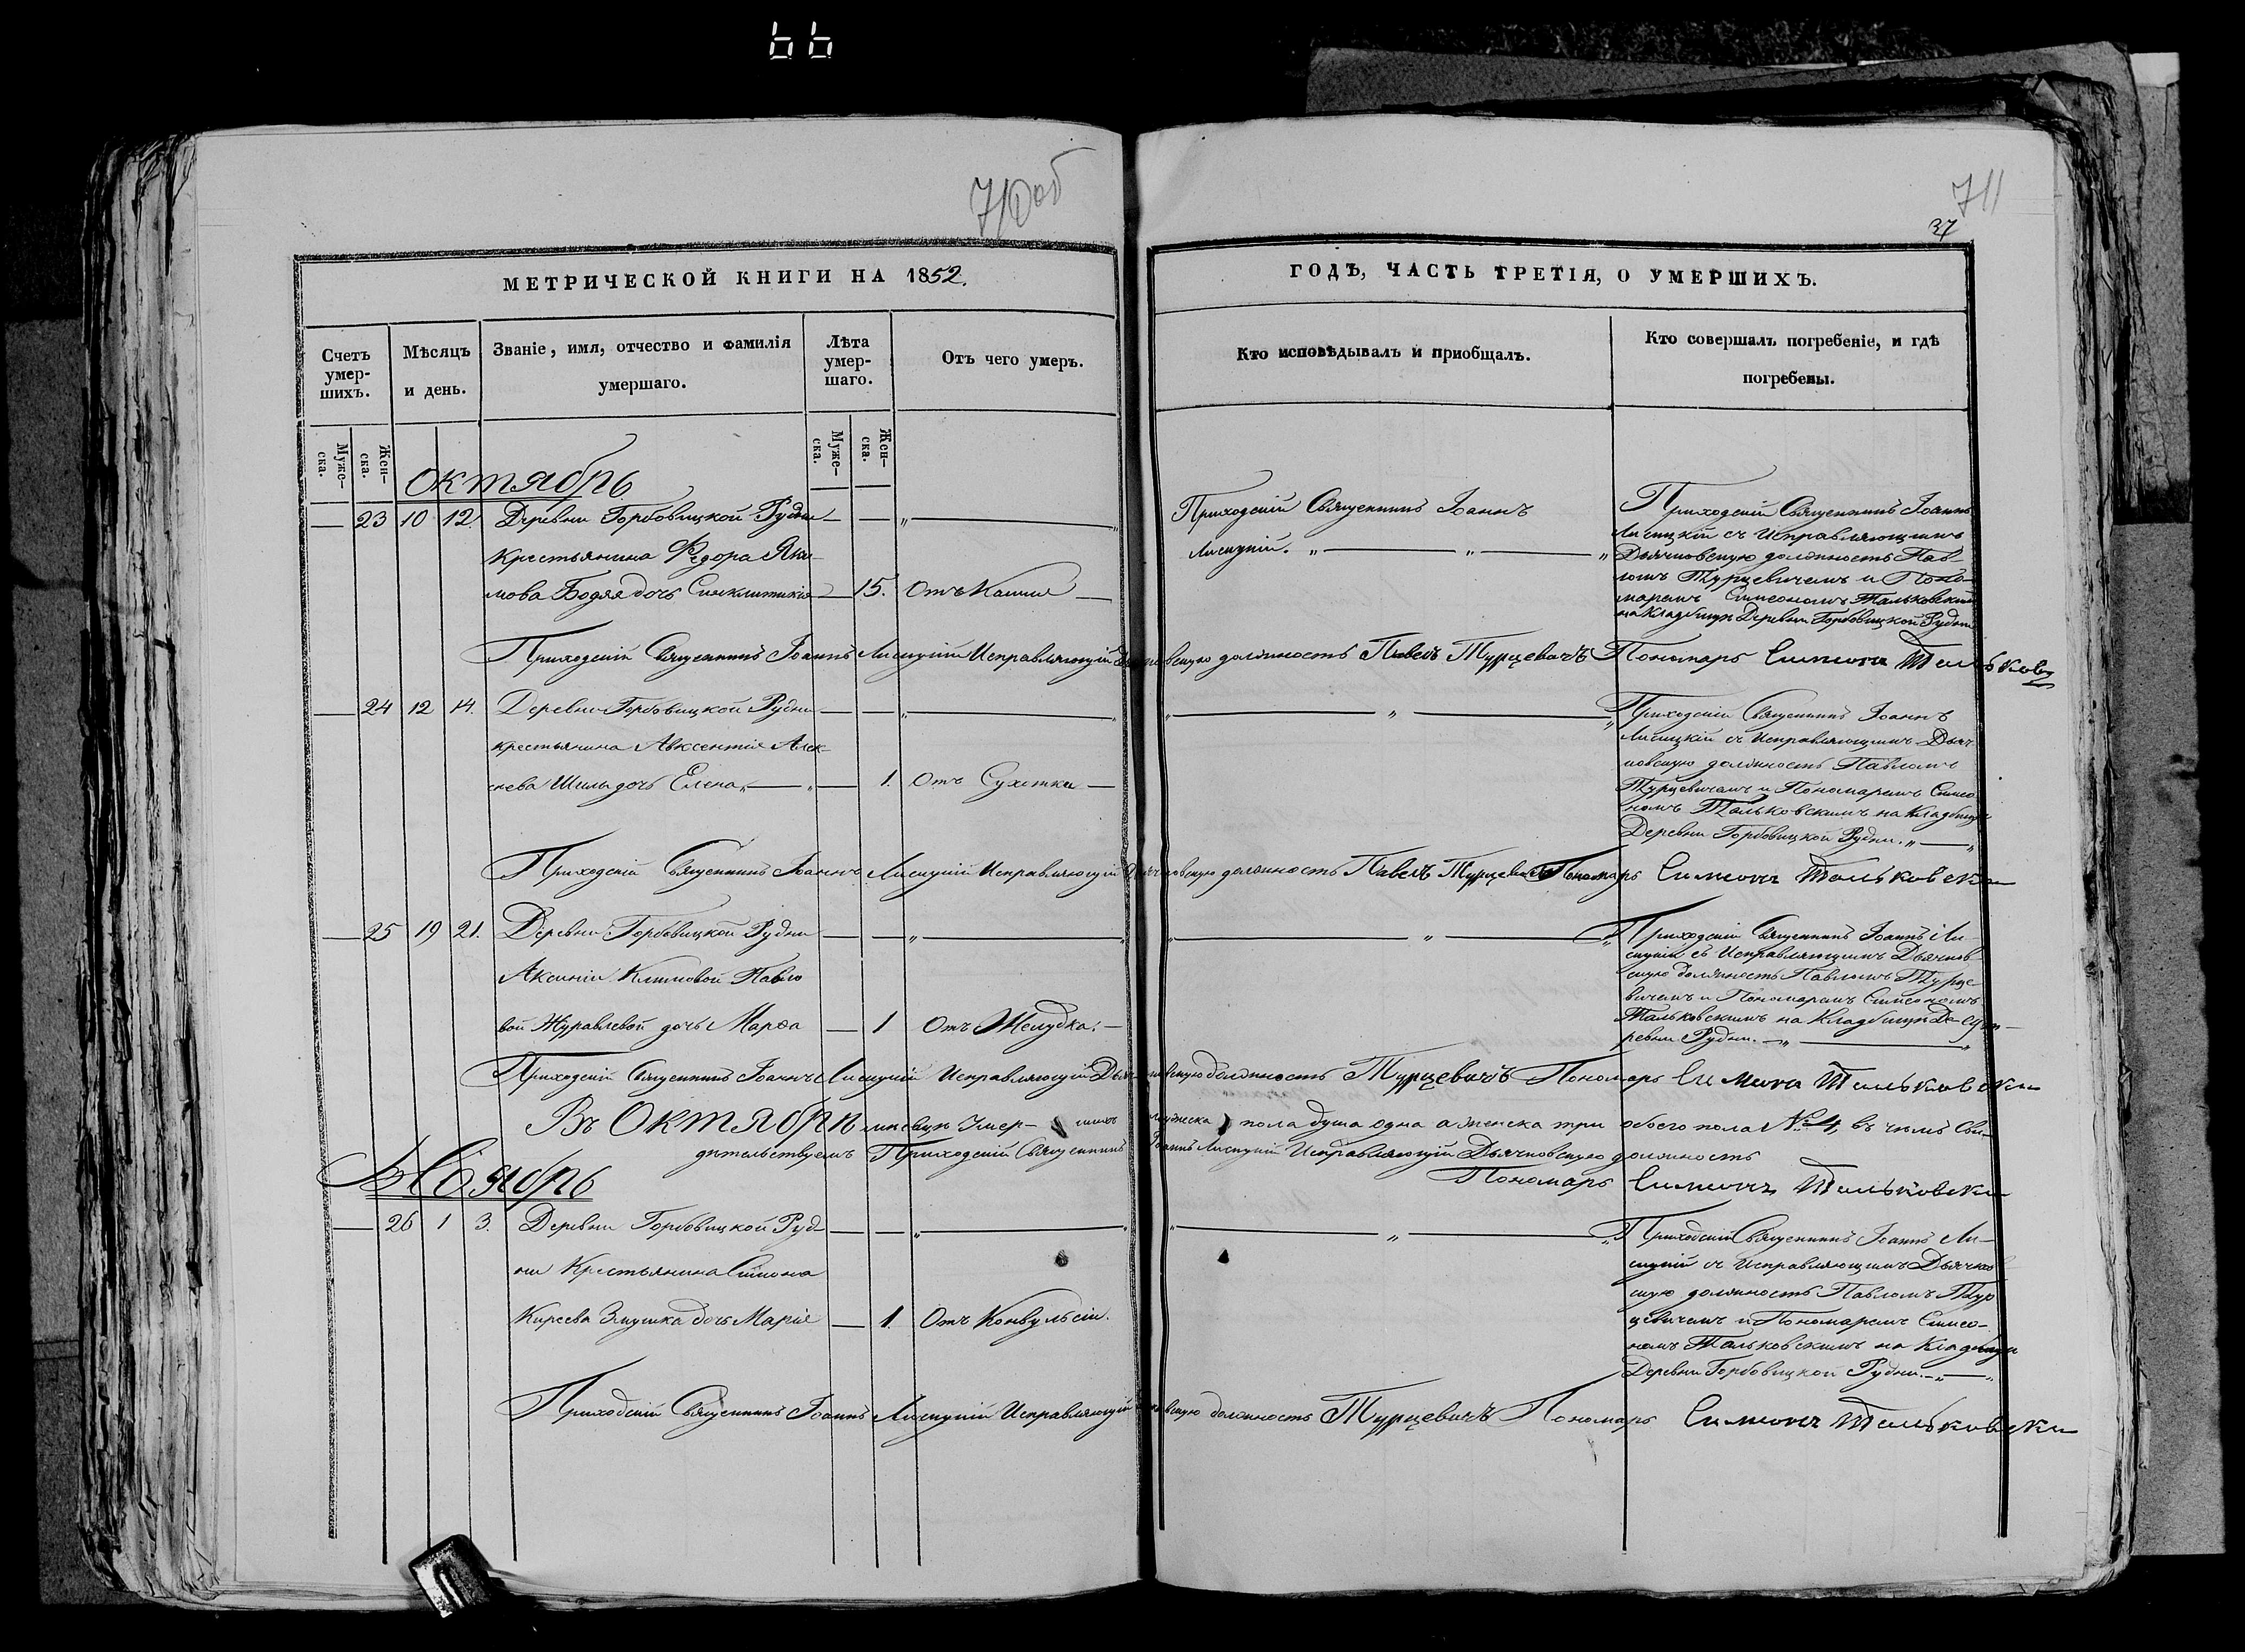 66
710об
711
37
МЕТРИЧЕСКОЙ КНИГИ НА 1852.
ГОДЪ, ЧАСТЬ ТРЕТІЯ, О УМЕРШИХЪ.
Счетъ умер-шихъ.
Мѣсяцъ и день.
Званіе, имя, отчество и фамилія умершаго.
Лѣта умер-шаго.
Отъ чего умеръ.
Кто исповѣдывалъ и пріобщалъ.
Кто совершалъ погребеніе, и гдѣ погребены.
Муже-ска.
Жен-ска.
Муже-ска.
Жен-ска.
Октябрь
23 10 12. Деревни Горбовицкой Рудни
крестьянина Ѳедора Яки-
мова Бодяя дочь Синклитикія 15. Отъ Кашля
Приходскій Священникъ Іоаннъ
Лисицкій.
Приходскій Священникъ Іоаннъ
Лисицкій съ Исправляющимъ
Дьячковскую должность Пав-
ломъ Турцевичемъ и Поно-
маремъ Симеономъ Тальковскимъ
на Кладбищѣ Деревни Горбовицкой Рудни
Приходскій Священникъ Іоаннъ Лисицкій Исправляющій Дьячковскую должность Павелъ Турцевичъ Пономарь Симеонъ Тальковс
24 12 14. Деревни Горбовицкой Рудни
крестьянина Авксентія Алек-
сѣева Шилы дочь Елена 1. Отъ Сухотки
Приходскій Священникъ Іоаннъ
Лисицкій съ Исправляющимъ Дьяч-
ковскую должность Павломъ
Турцевичемъ и Пономаремъ Симео-
номъ Тальковскимъ на Кладбищѣ
Деревни Горбовицкой Рудни.
Приходскій Священникъ Іоаннъ Лисицкій Исправляющій Дьячковскую должность Павелъ Турцевичъ Пономарь Симеонъ Тальковски
25 19 21. Деревни Горбовицкой Рудни
Аксиніи Климовой Павло
вой Журавлевой дочь Марѳа 1 Отъ Желудка.
Приходскій Священникъ Іоаннъ Ли-
сицкій съ Исправляющимъ Дьячков-
скую должность Павломъ Турце-
вичемъ и Пономаремъ Симеономъ
Тальковскимъ на Кладбищѣ Де-
ревни Рудни.
Приходскій Священникъ Іоаннъ Лисицкій Исправляющій Дьячковскую должность Турцевичъ Пономарь Симеонъ Тальковски
Въ Октябрѣ мѣсяцѣ Умер-шихъ мужеска пола душа одна а женска три обоего пола № 4, въ чемъ Сви-
дѣтельствуемъ Приходскій Священникъ Іоаннъ Лисицкій Исправляющій Дьячковскую должность
Пономарь Симеонъ Тальковски
Ноябрь
26 1 3. Деревни Горбовицкой Руд-
ни Крестьянина Симона
Киреева Змушка дочь Марія 1. Отъ Конвульсіи.
Приходскій Священникъ Іоаннъ Ли-
сицкій съ Исправляющимъ Дьячков
скую должность Павломъ Тур
цевичемъ и Пономаремъ Симео-
номъ Тальковскимъ на Кладбищѣ
Деревни Горбовицкой Рудни.
Приходскій Священникъ Іоаннъ Лисицкій Исправляющій Дьячковскую должность Турцевичъ Пономарь Симеонъ Тальковски